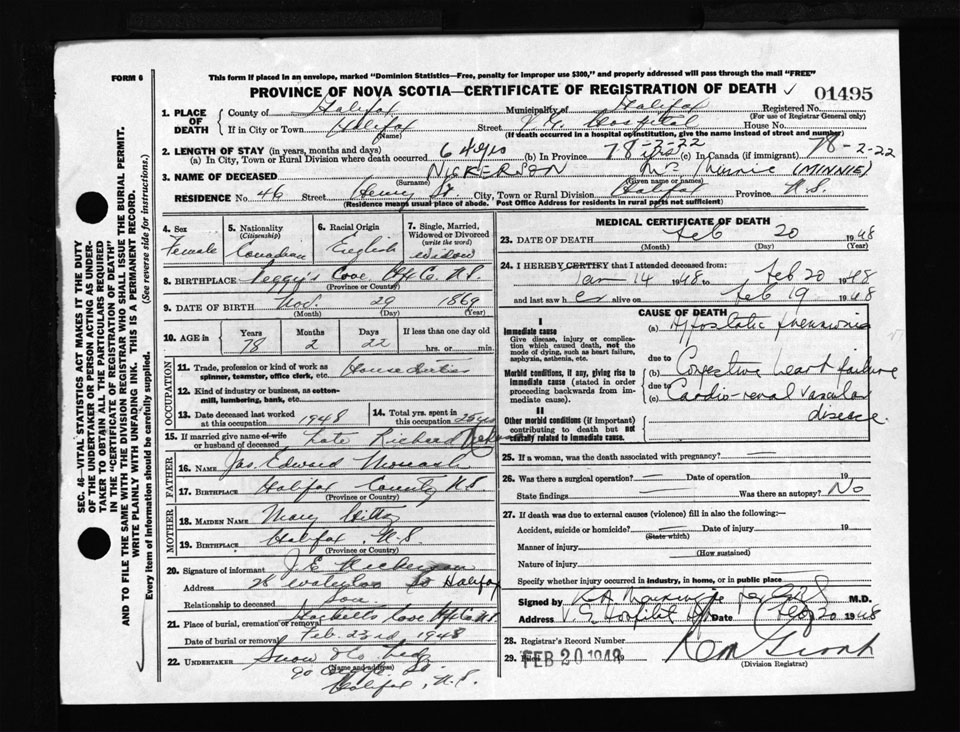 FORM 6
This form if placed in an envelope, marked "Dominion Statistics—Free, penalty for improper use $300," and properly addressed will pass through the mail "FREE"
PROVINCE OF NOVA SCOTIA—CERTIFICATE OF REGISTRATION OF DEATH
01495
1. PLACE OF DEATH
County of Halifax Municipality of Halifax Registered No.
(For use of Registrar General only)
If in City or Town Halifax Street V.G. Hospital House No.
(Name) (If death occurred in a hospital or institution, give the name instead of street and number)
2. LENGTH OF STAY (in years, months and days)
(a) In City, Town or Rural Division where death occurred 64 yrs (b) In Province 78-2-22 (c) In Canada (if immigrant) 78-2-22
3. NAME OF DECEASED NICKERSON Minnie (MINNIE)
(Surname) (Given name or names)
RESIDENCE No. 46 Street Henry St. City, Town or Rural Division Halifax Province N.S.
(Residence means usual place of abode. Post Office Address for residents in rural parts not sufficient)
4. Sex Female
5. Nationality (Citizenship) Canadian
6. Racial Origin English
7. Single, Married, Widowed or Divorced (write the word) Widow
8. BIRTHPLACE Peggy's Cove Hfx Co. N.S.
(Province or Country)
9. DATE OF BIRTH Nov. 29 1869
(Month) (Day) (Year)
10. AGE in Years 78 Months 2 Days 22 If less than one day old hrs. or min.
OCCUPATION
11. Trade, profession or kind of work as spinner, teamster, office clerk, etc. House duties
12. Kind of industry or business, as cotton-mill, lumbering, bank, etc.
13. Date deceased last worked at this occupation 1948
14. Total yrs. spent in this occupation
15. If married give name of wife or husband of deceased Late Richard
FATHER
16. NAME Jas. Edward
17. BIRTHPLACE Halifax County N.S.
(Province or Country)
MOTHER
18. MAIDEN NAME Mary
19. BIRTHPLACE Halifax, N.S.
(Province or Country)
20. Signature of informant Nickerson
Address Waterloo St Halifax
Relationship to deceased Son
21. Place of burial, cremation or removal Hacketts Cove Hfx Co N.S.
Date of burial or removal Feb. 23rd 1948
22. UNDERTAKER Snow & Co Ltd
(Name and address)
90
Halifax, N.S.
MEDICAL CERTIFICATE OF DEATH
23. DATE OF DEATH Feb 20 1948
(Month) (Day) (Year)
24. I HEREBY CERTIFY that I attended deceased from:
Jan 14 1948 to Feb 20 1948
and last saw her alive on Feb 19 1948
CAUSE OF DEATH
I
Immediate cause
Give disease, injury or complication which caused death, not the mode of dying, such as heart failure, asphyxia, asthenia, etc.
(a) Hypostatic pneumonia
due to
Morbid conditions, if any, giving rise to immediate cause (stated in order proceeding backwards from immediate cause).
(b) Congestive heart failure
due to
(c) Cardio-renal vascular disease
II
Other morbid conditions (if important) contributing to death but not causally related to immediate cause.
25. If a woman, was the death associated with pregnancy?
26. Was there a surgical operation? Date of operation 19
State findings Was there an autopsy? No
27. If death was due to external causes (violence) fill in also the following:—
Accident, suicide or homicide? Date of injury 19
(State which)
Manner of injury
(How sustained)
Nature of injury
Specify whether injury occurred in industry, in home, or in public place
Signed by M.D.
V.G. Hospital Date Feb 20 1948
28. Registrar's Record Number
29. FEB 20 1948
(Division Registrar)
SEC. 46—VITAL STATISTICS ACT MAKES IT THE DUTY
OF THE UNDERTAKER OR PERSON ACTING AS UNDER-
TAKER TO OBTAIN ALL THE PARTICULARS REQUIRED
IN THE "CERTIFICATE OF REGISTRATION OF DEATH"
AND TO FILE THE SAME WITH THE DIVISION REGISTRAR WHO SHALL ISSUE THE BURIAL PERMIT.
WRITE PLAINLY WITH UNFADING INK. THIS IS A PERMANENT RECORD.
Every item of information should be carefully supplied. (See reverse side for instructions.)